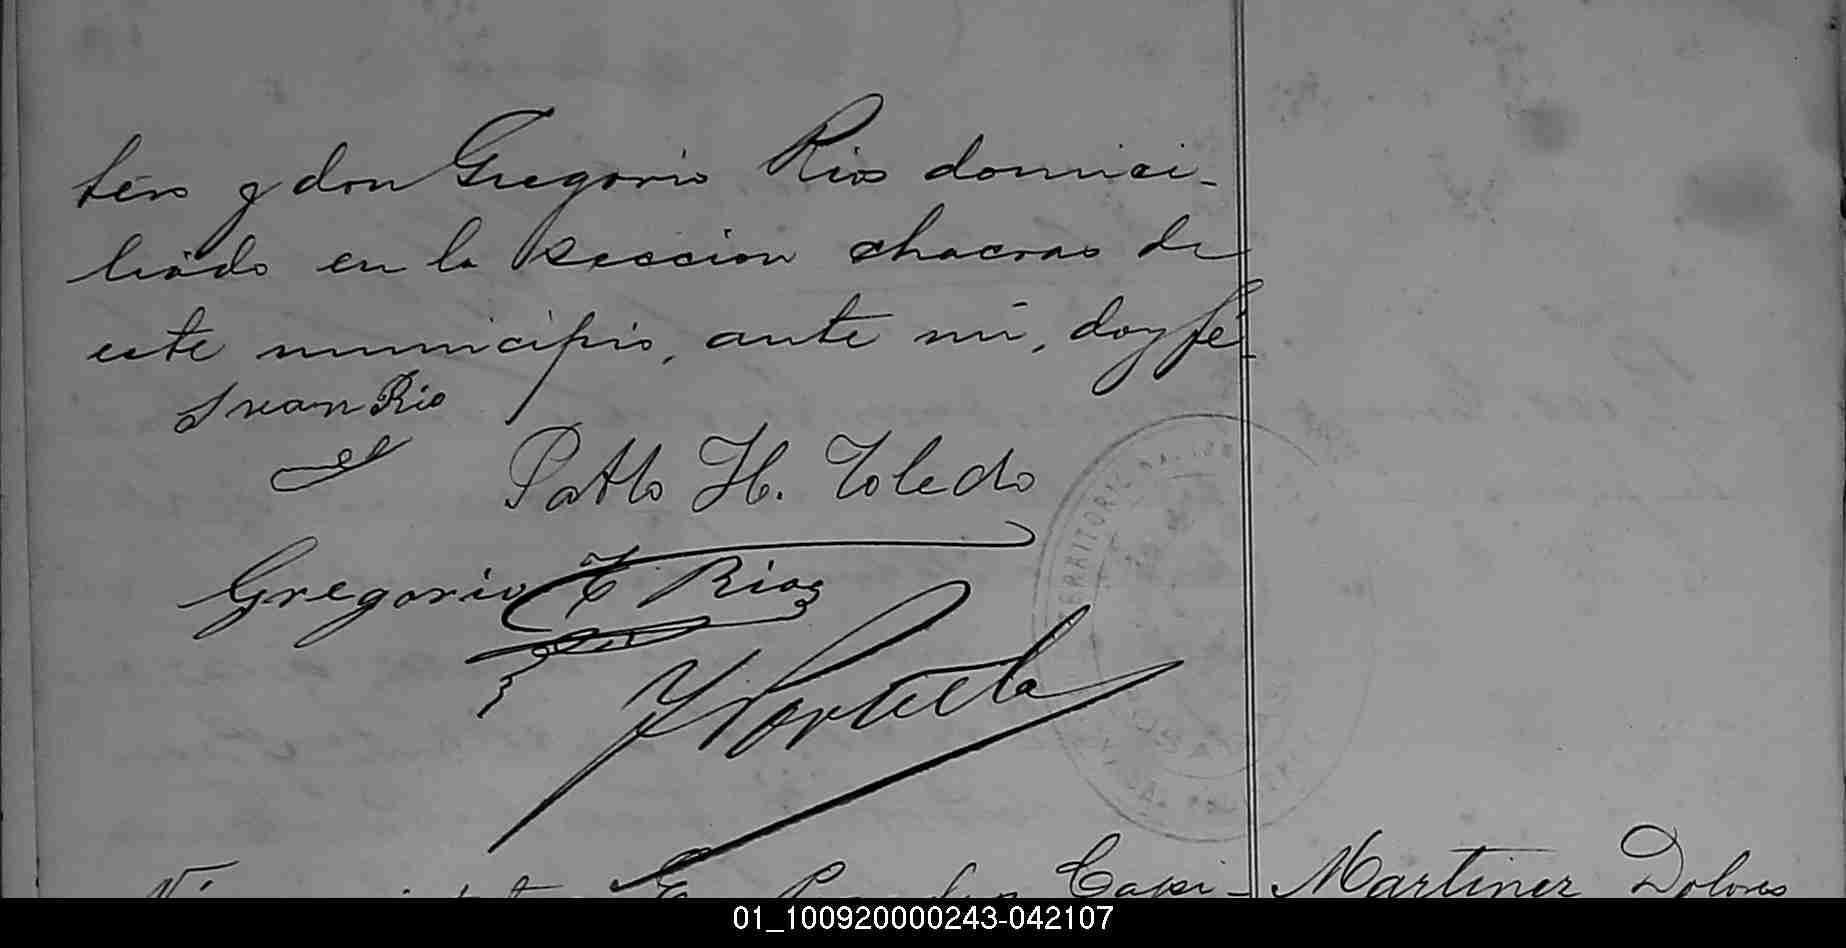 tero y don Gregorio Rios domici-
liado en la seccion chacras de
este municipio, ante mí, doy fé
Juan Rio
Pablo H. Toledo
Gregorio T. Rios
Y Portela
TERRITORIO NACIONAL
Capi- Martinez Dolores
01_100920000243-042107